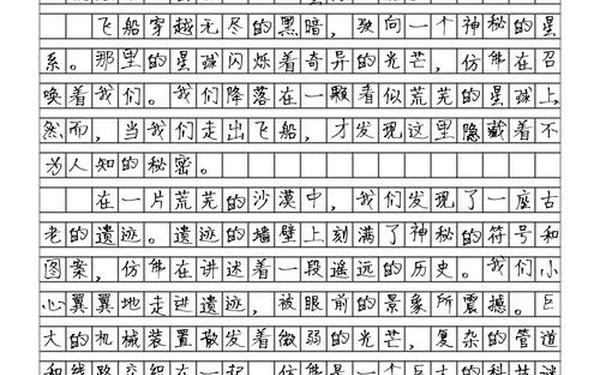 飞船穿越无尽的黑暗，驶向一个神秘的星
系。那里的星球闪烁着奇异的光芒，仿佛在召
唤着我们。我们降落在一颗看似荒芜的星球上，
然而，当我们走出飞船，才发现这里隐藏着不
为人知的秘密。
在一片荒芜的沙漠中，我们发现了一座古
老的遗迹。遗迹的墙壁上刻满了神秘的符号和
图案，仿佛在讲述着一段遥远的历史。我们小
心翼翼地走进遗迹，被眼前的景象所震撼。巨
大的机械装置散发着微弱的光芒，复杂的管道
和线路交织在一起，仿佛是一个巨大的科技谜